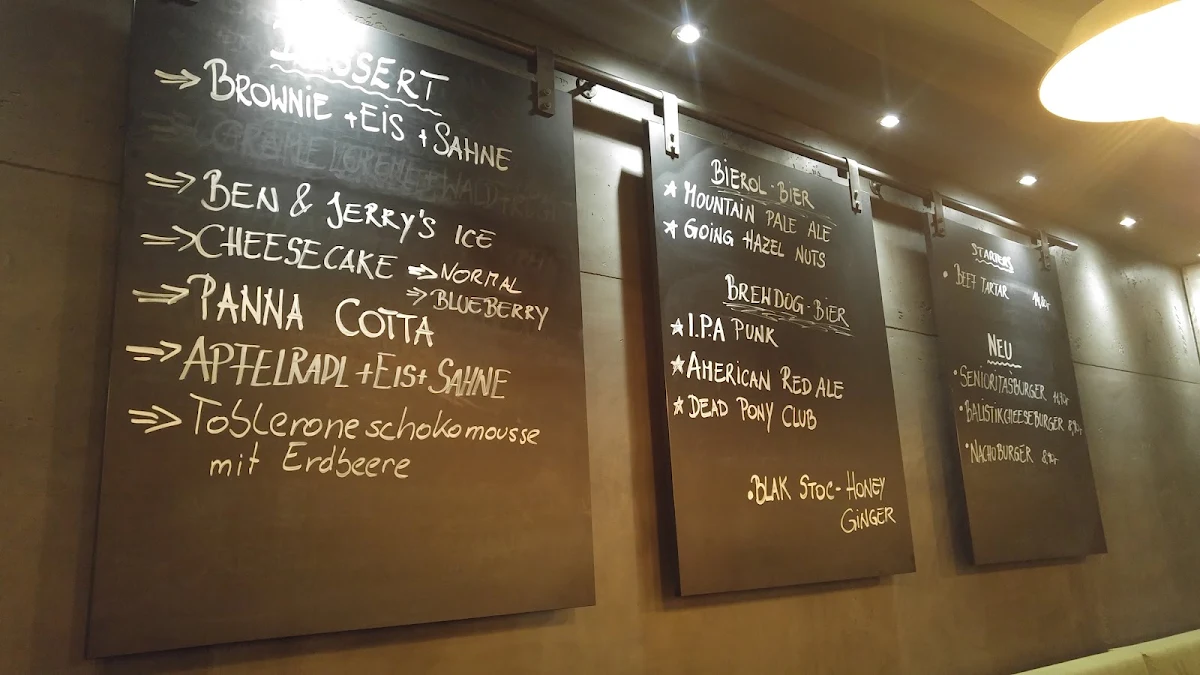 DESSERT
⇒ BROWNIE + EIS + SAHNE
⇒ BEN & JERRY'S ICE
⇒ CHEESECAKE ⇒ NORMAL
⇒ BLUEBERRY
⇒ PANNA COTTA
⇒ APFELRADL + EIS + SAHNE
⇒ Tobleroneschokomousse
mit Erdbeere
BIEROL-BIER
★ MOUNTAIN PALE ALE
★ GOING HAZEL NUTS
BREWDOG-BIER
★ I.P.A PUNK
★ AMERICAN RED ALE
★ DEAD PONY CLUB
• BLAK STOC - HONEY
GINGER
STARTERS
• BEEF TARTAR
NEU
• SENIORITASBURGER
• BALISTIKCHEESEBURGER
• NACHOBURGER